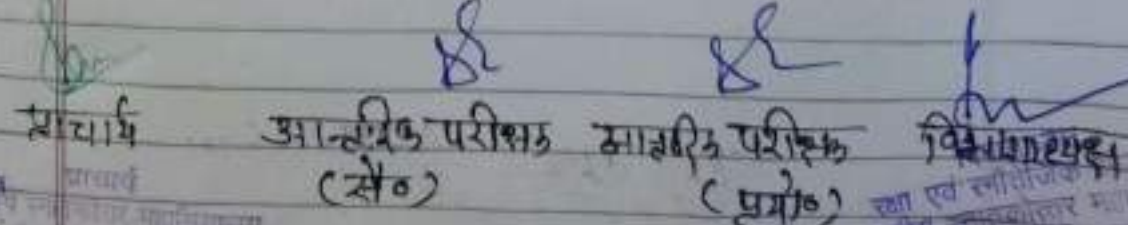 प्राचार्य आन्तरिक परीक्षक आन्तरिक परीक्षक विभागाध्यक्ष
(सै०) (प्रयो०)
प्राचार्य रक्षा एवं